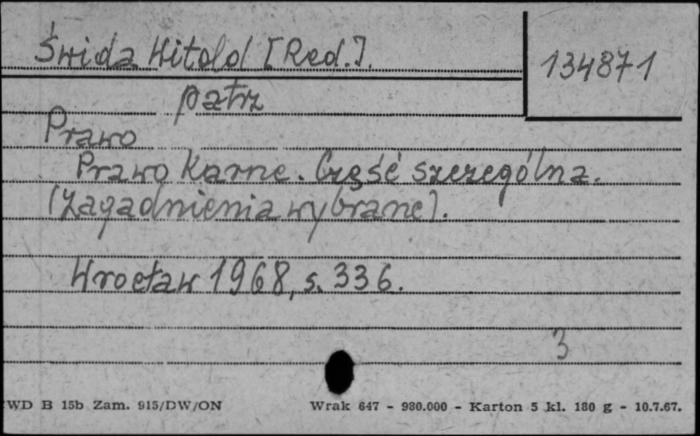 Świda Witold [Red.].
134871
patrz
Prawo
Prawo Karne. Część szczególna.
(Zagadnienia wybrane).
Wrocław 1968, s. 336.
3
WD B 15b Zam. 915/DW/ON
Wrak 647 - 980.000 - Karton 5 kl. 180 g - 10.7.67.